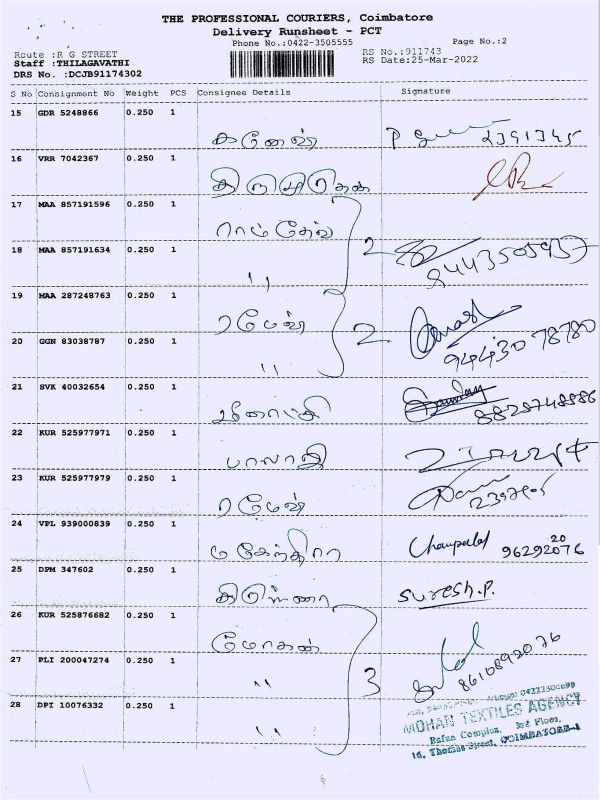 THE PROFESSIONAL COURIERS, Coimbatore
Delivery Runsheet - PCT
Phone No.:0422-3505555 Page No.:2
Route :R G STREET RS No.:911743
Staff :THILAGAVATHI RS Date:25-Mar-2022
DRS No. :DCJB91174302
S No Consignment No Weight PCS Consignee Details Signature
15 GDR 5248866 0.250 1
கணேஷ் 2391345
16 VRR 7042367 0.250 1
17 MAA 857191596 0.250 1
ராம்தேவ்
18 MAA 857191634 0.250 1 2
" 9443505937
19 MAA 287248763 0.250 1
ரமேஷ்
20 GGN 83038787 0.250 1 2
" 94430 78780
21 SVK 40032654 0.250 1
மீனாட்சி 8828748886
22 KUR 525977971 0.250 1
பாலாஜி
23 KUR 525977979 0.250 1
ரமேஷ்
24 VPL 939000839 0.250 1
மகேந்திரா 96292076
20
25 DPM 347602 0.250 1
கிருஷ்ணா suresh.P.
26 KUR 525876682 0.250 1
மோகன்
27 PLI 200047274 0.250 1 3
" 8610892076
28 DPI 10076332 0.250 1
"
MOHAN TEXTILES AGENCY
Complex, Floor,
16, Thomas Street, COIMBATORE-1